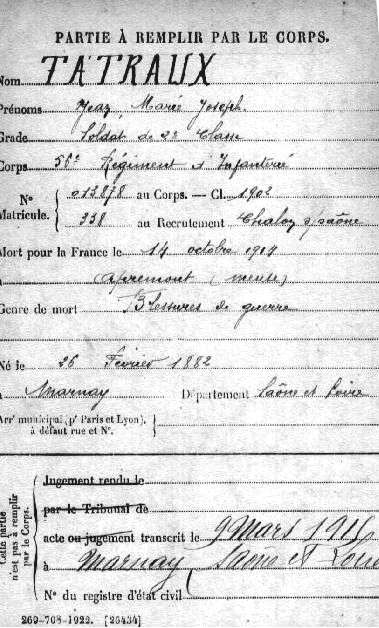 PARTIE À REMPLIR PAR LE CORPS.
Nom TATRAUX
Prénoms Jean Marie Joseph
Grade Soldat de 2e Classe
Corps 56e Régiment d'Infanterie
N° Matricule. { 013878 au Corps. — Cl. 1902
338 au Recrutement Chalon s/saône
Mort pour la France le 14 octobre 1914
à Apremont (meuse)
Genre de mort Blessures de guerre
Né le 26 Février 1882
à Marnay Département Saône et Loire
Arr' municipal (p' Paris et Lyon), à défaut rue et N°. }
Cette partie n'est pas à remplir par le Corps.
Jugement rendu le
par le Tribunal de
acte ou jugement transcrit le 9 Mars
à Marnay Saone et Loire
N° du registre d'état civil
269-708-1922. [26434]